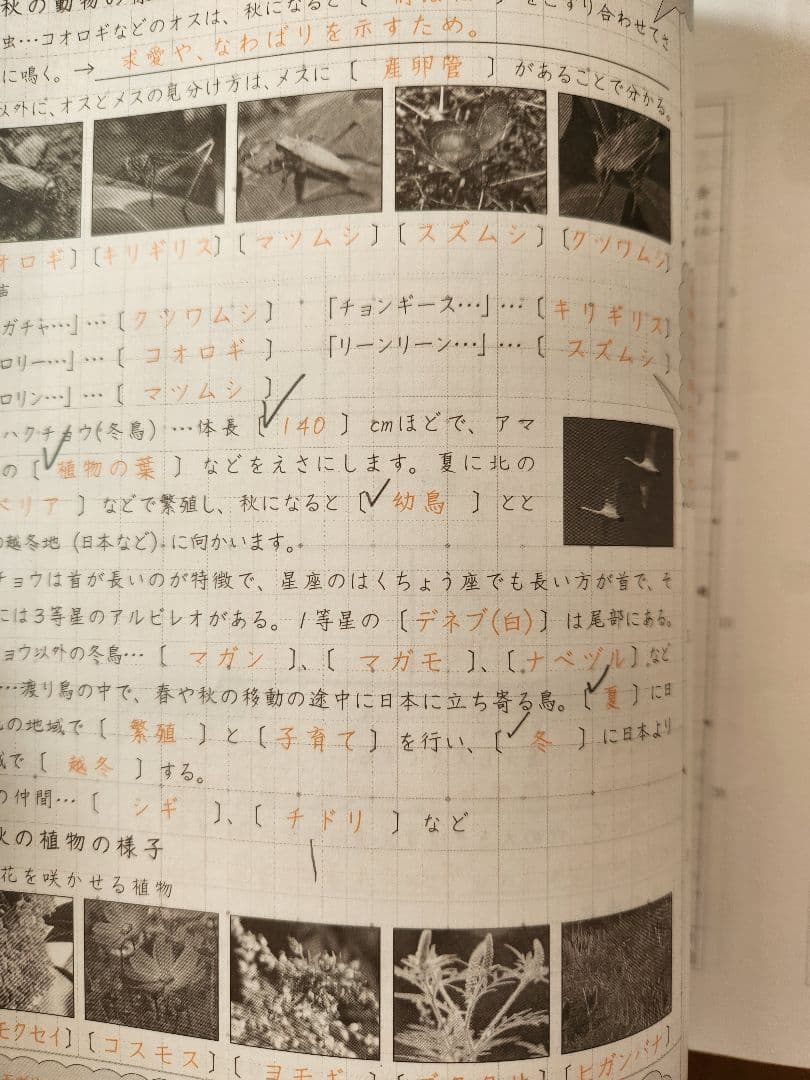 秋の動物の様
虫…コオロギなどのオスは、秋になると〔 〕をこすり合わせてさ
に鳴く。→ 求愛や、なわばりを示すため。
以外に、オスとメスの見分け方は、メスに〔 産卵管 〕があることで分かる。
オロギ〕〔キリギリス〕〔マツムシ〕〔スズムシ〕〔クツワムシ〕
声
ガチャ…」…〔クツワムシ〕 「チョンギース…」…〔キリギリス〕
ロリー…」…〔 コオロギ 〕 「リーンリーン…」…〔 スズムシ 〕
ロリン…」…〔 マツムシ 〕
ハクチョウ(冬鳥)…体長〔 140 〕cmほどで、アマ
の〔 植物の葉 〕などをえさにします。夏に北の
ベリア 〕などで繁殖し、秋になると〔 幼鳥 〕とと
越冬地(日本など)に向かいます。
チョウは首が長いのが特徴で、星座のはくちょう座でも長い方が首で、そ
には3等星のアルビレオがある。1等星の〔デネブ(白)〕は尾部にある。
ョウ以外の冬鳥…〔 マガン 〕、〔 マガモ 〕、〔ナベヅル〕など
…渡り鳥の中で、春や秋の移動の途中に日本に立ち寄る鳥。〔 夏 〕に日
の地域で〔 繁殖 〕と〔 子育て 〕を行い、〔 冬 〕に日本より
域で〔 越冬 〕する。
の仲間…〔 シギ 〕、〔 チドリ 〕など
秋の植物の様子
花を咲かせる植物
モクセイ〕〔コスモス〕〔 ヨモギ 〔ヒガンバナ〕